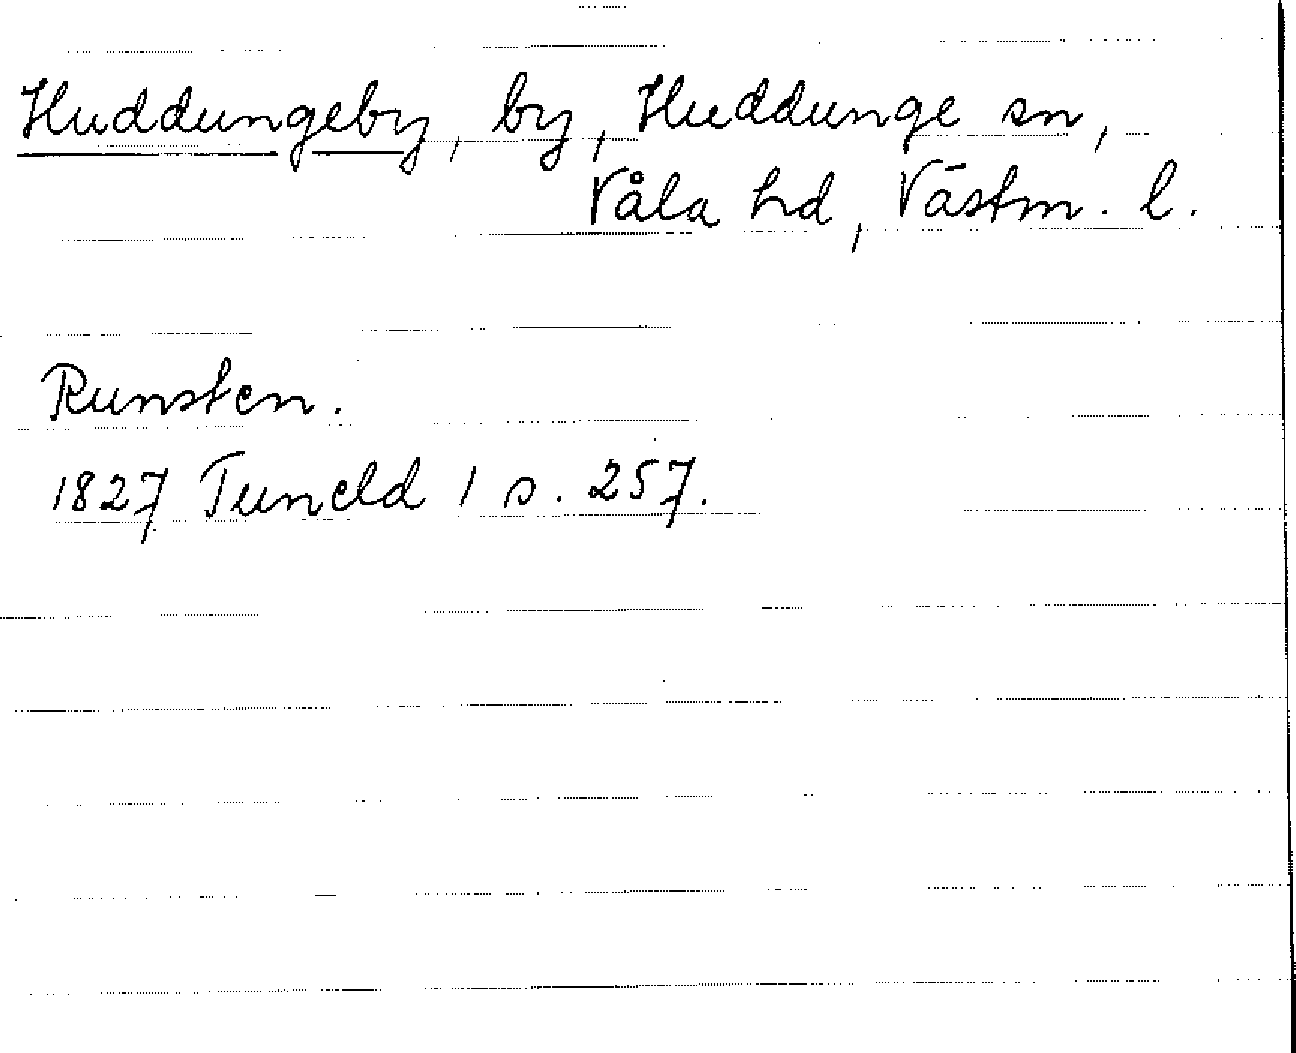 Huddungeby, by, Huddunge sn,
Våla hd, Västm. l.
Runsten.
1827 Tuneld 1 s. 257.